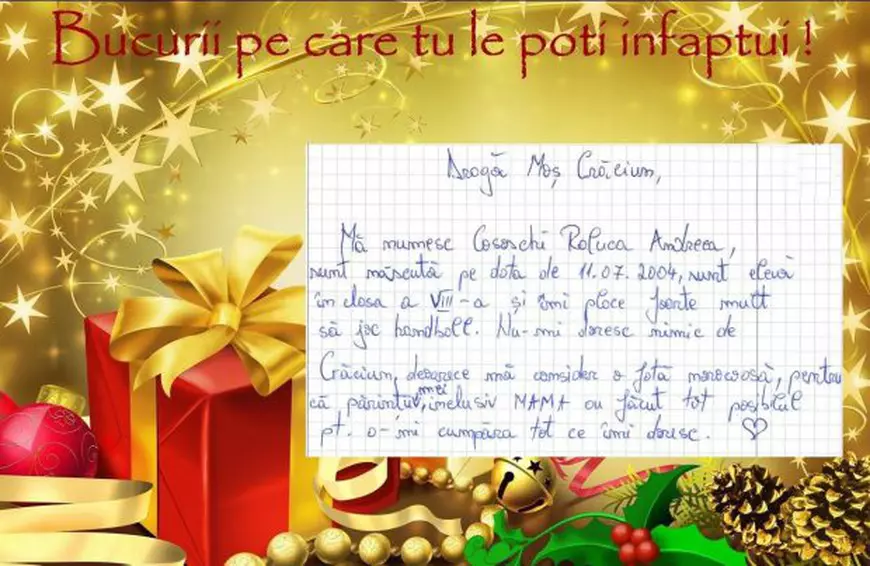 Bucurii pe care tu le poti infaptui !
Dragă Moș Crăciun,
Mă numesc Cososchi Raluca Andreea,
sunt născută pe data de 11.07.2004, sunt elevă
în clasa a VIII-a și îmi place foarte mult
să joc handball. Nu-mi doresc nimic de
Crăciun, deoarece mă consider o fată norocoasă, pentru
că părinții mei, inclusiv MAMA au făcut tot posibilul
pt. a-mi cumpăra tot ce îmi doresc. ♡